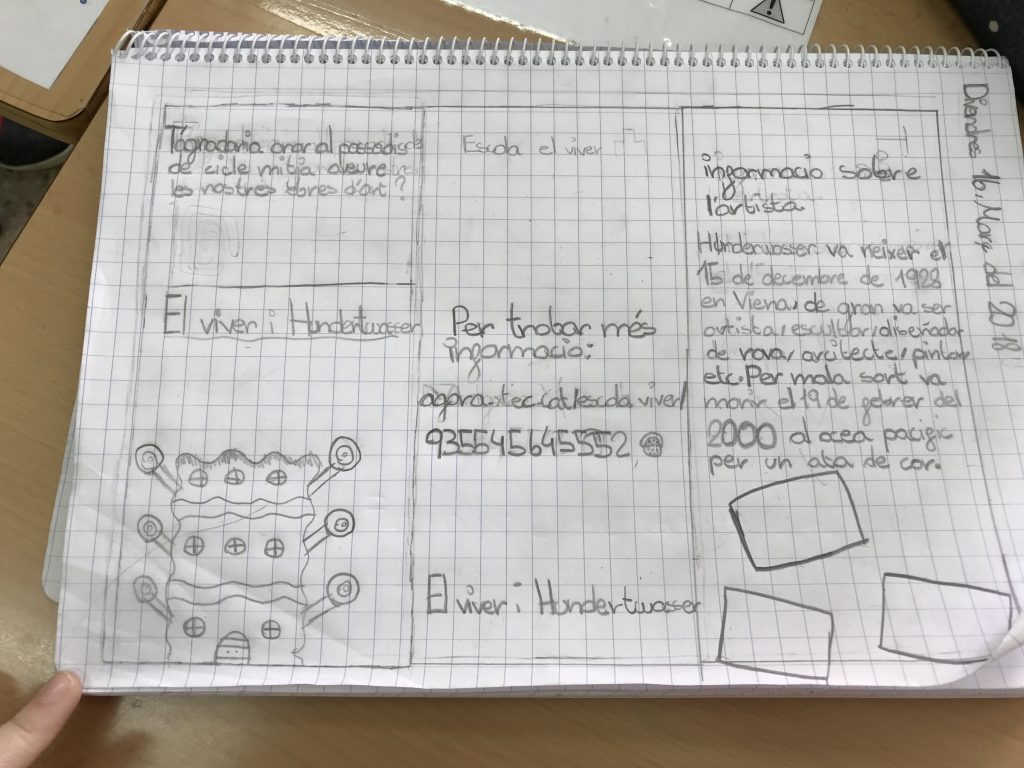 T'agradaria anar al passadis
de cicle mitja a veure
les nostres obres d'art?
El viver i Hundertwasser
Escola el viver
Per trobar més
informacio:
agora.xtec.cat/escola viver/
935545645552
El viver i Hundertwasser
informacio sobre
l'artista
Hunderwasser va neixer el
15 de decembre de 1928
en Viena, de gran va ser
artista, escultor, diseñador
de rova, arcitecte, pintor,
etc. Per mala sort va
morir el 19 de gebrer del
2000 al ocea pacific
per un atac de cor.
Divendres 16, Març del 2018